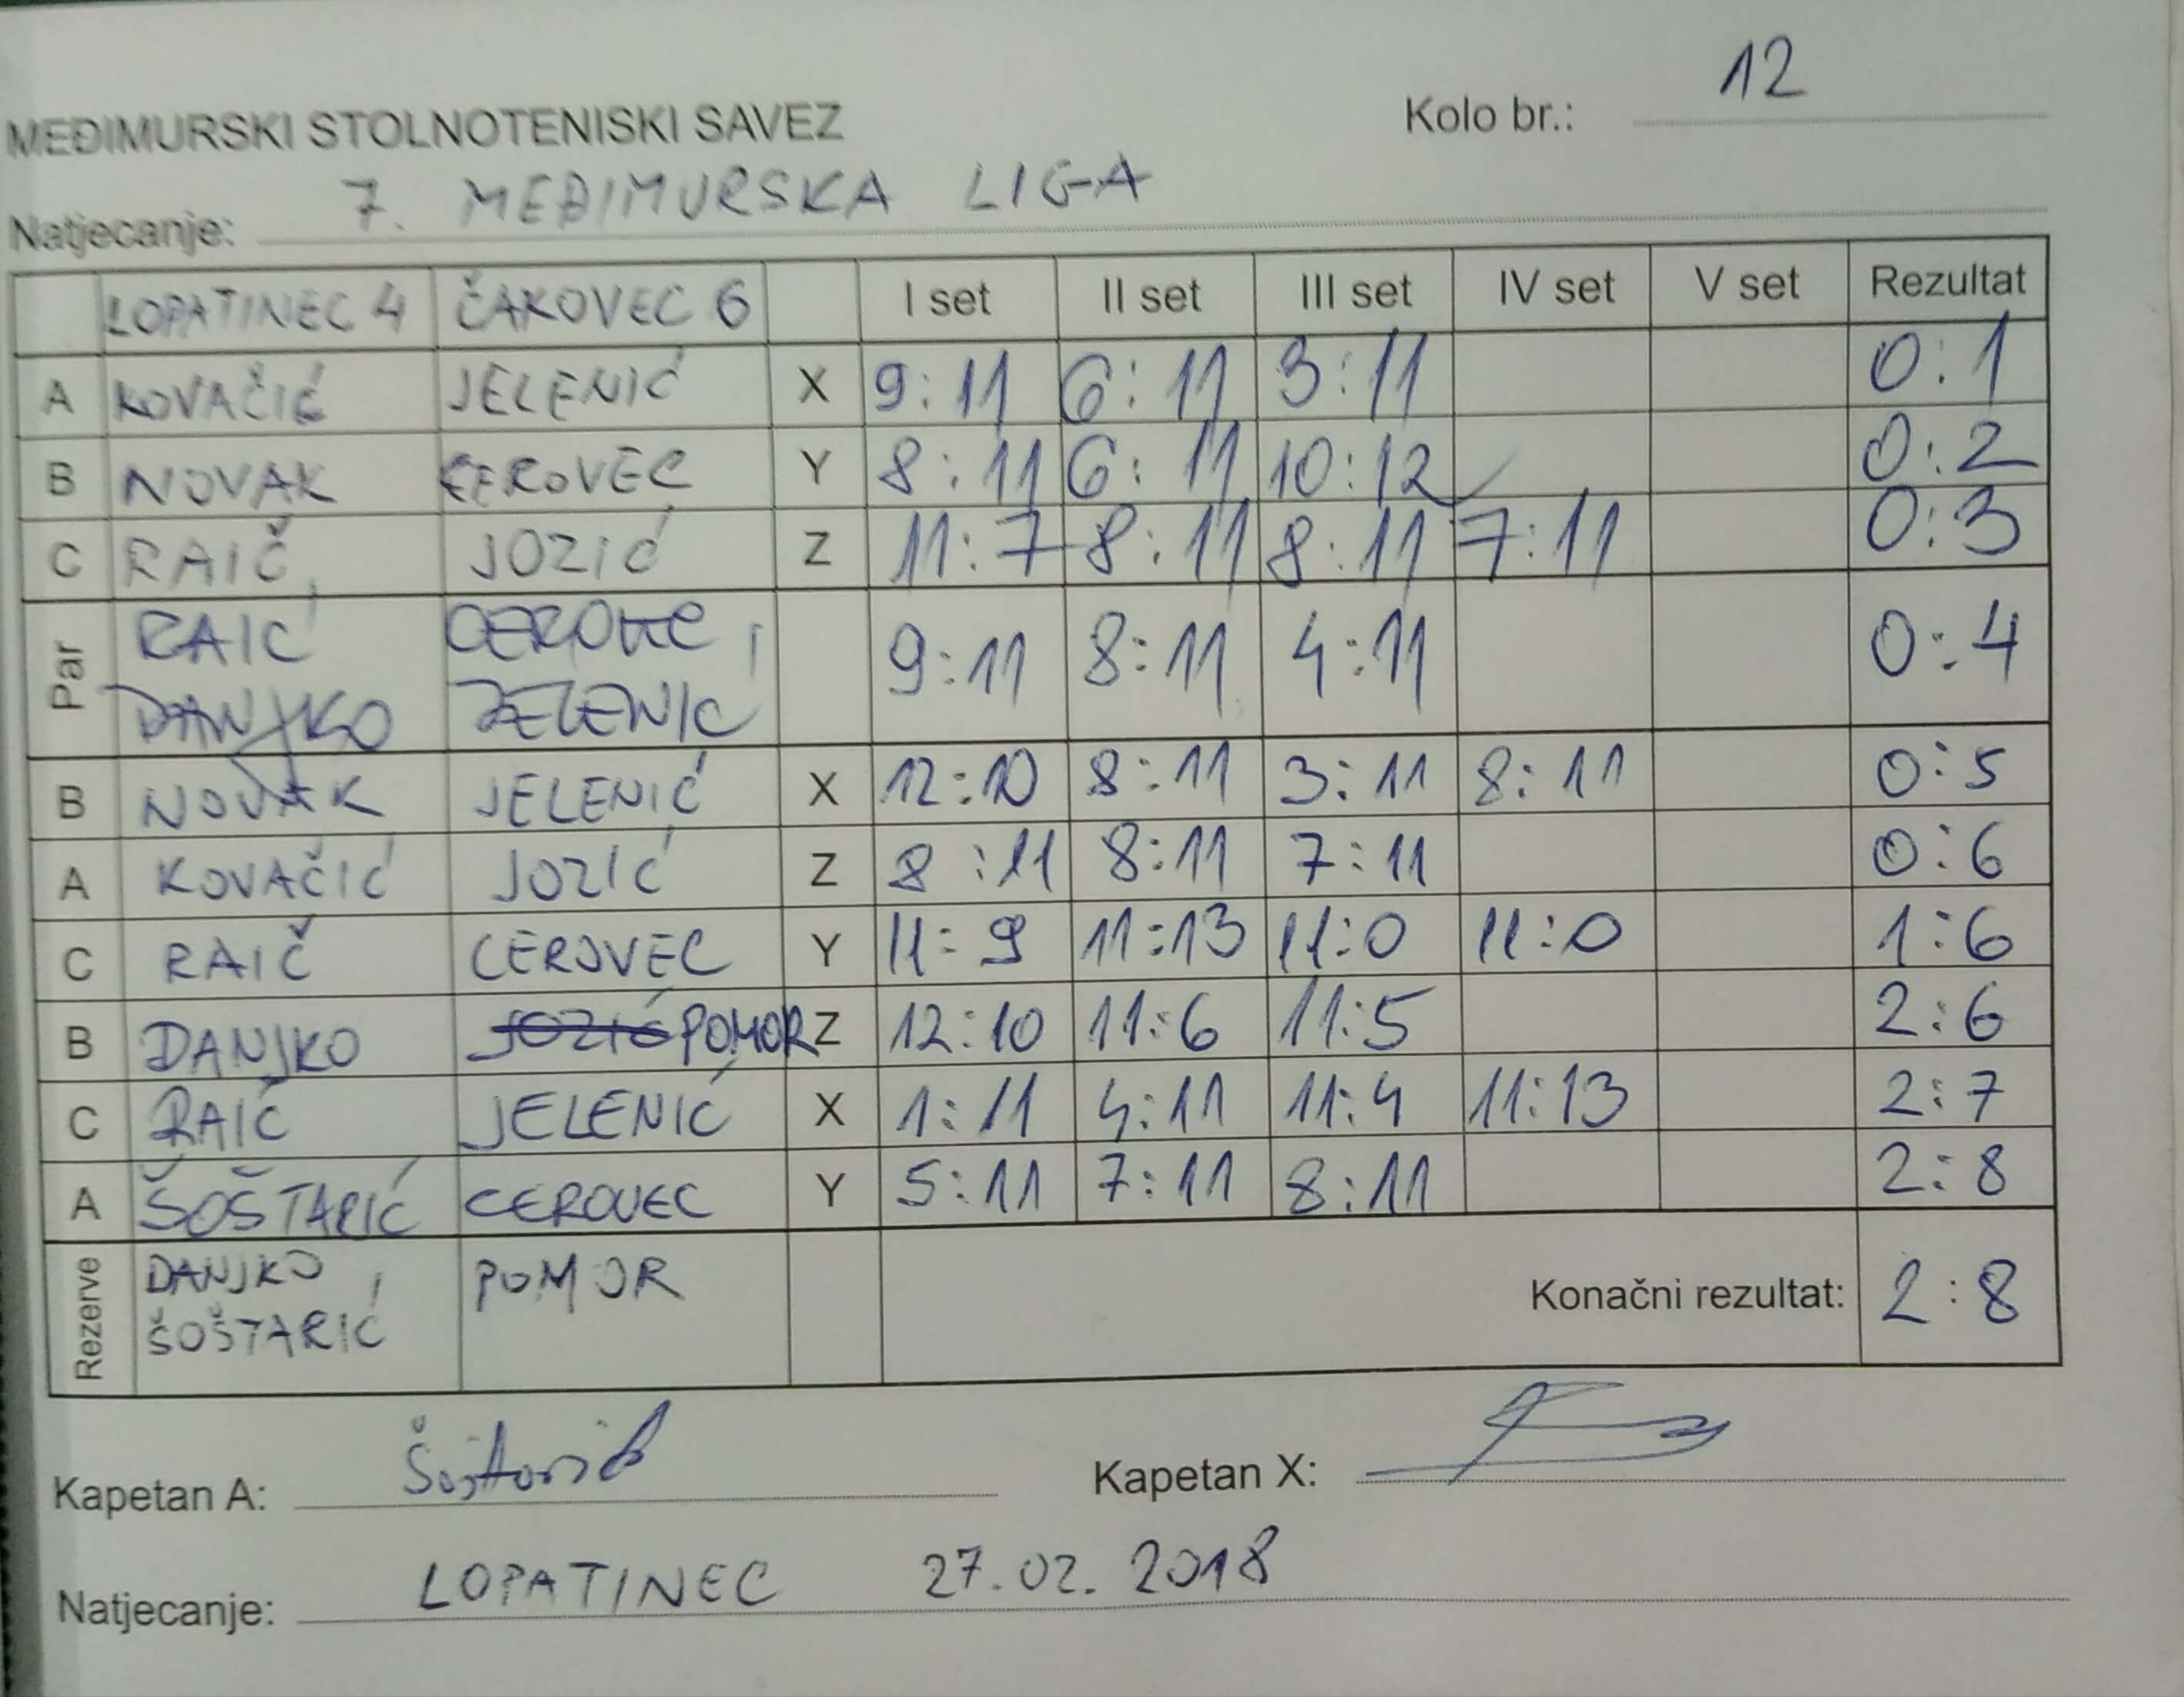 Kolo br.: 12
MEĐIMURSKI STOLNOTENISKI SAVEZ
Natjecanje: 7. MEĐIMURSKA LIGA
LOPATINEC 4 ČAKOVEC 6 I set II set III set IV set V set Rezultat
A KOVAČIĆ JELENIĆ X 9:11 6:11 3:11 0:1
B NOVAK CEROVEC Y 8:11 6:11 10:12 0:2
C RAIČ JOZIĆ Z 11:7 8:11 8:11 7:11 0:3
Par RAIĆ CEROVEC 9:11 8:11 4:11 0:4
DANJKO JELENIĆ
B NOVAK JELENIĆ X 12:10 8:11 3:11 8:11 0:5
A KOVAČIĆ JOZIĆ Z 8:11 8:11 7:11 0:6
C RAIČ CEROVEC Y 11:9 11:13 11:0 11:0 1:6
B DANJKO JOZIĆ POMOR Z 12:10 11:6 11:5 2:6
C RAIČ JELENIĆ X 1:11 4:11 11:4 11:13 2:7
A ŠOŠTARIĆ CEROVEC Y 5:11 7:11 8:11 2:8
Rezerve DANJKO POMOR Konačni rezultat: 2:8
ŠOŠTARIĆ
Kapetan A: Šoštarić Kapetan X:
Natjecanje: LOPATINEC 27.02.2018